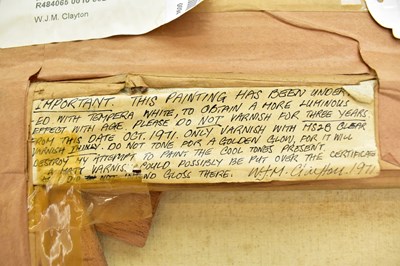 R484065 0010 002
W.J.M. Clayton
IMPORTANT. THIS PAINTING HAS BEEN UNDER
ED WITH TEMPERA WHITE, TO OBTAIN A MORE LUMINOUS
EFFECT WITH AGE. PLEASE DO NOT VARNISH FOR THREE YEARS
FROM THIS DATE OCT. 1971. ONLY VARNISH WITH MS2B CLEAR
VARNISH THINLY. DO NOT TONE FOR A GOLDEN GLOW, FOR IT WILL
DESTROY MY ATTEMPT TO PAINT THE COOL TONES PRESENT.
A MATT VARNIS. COULD POSSIBLY BE PUT OVER THE CERTIFICATE
NO GLOSS THERE. W.J.M. Clayton. 1971